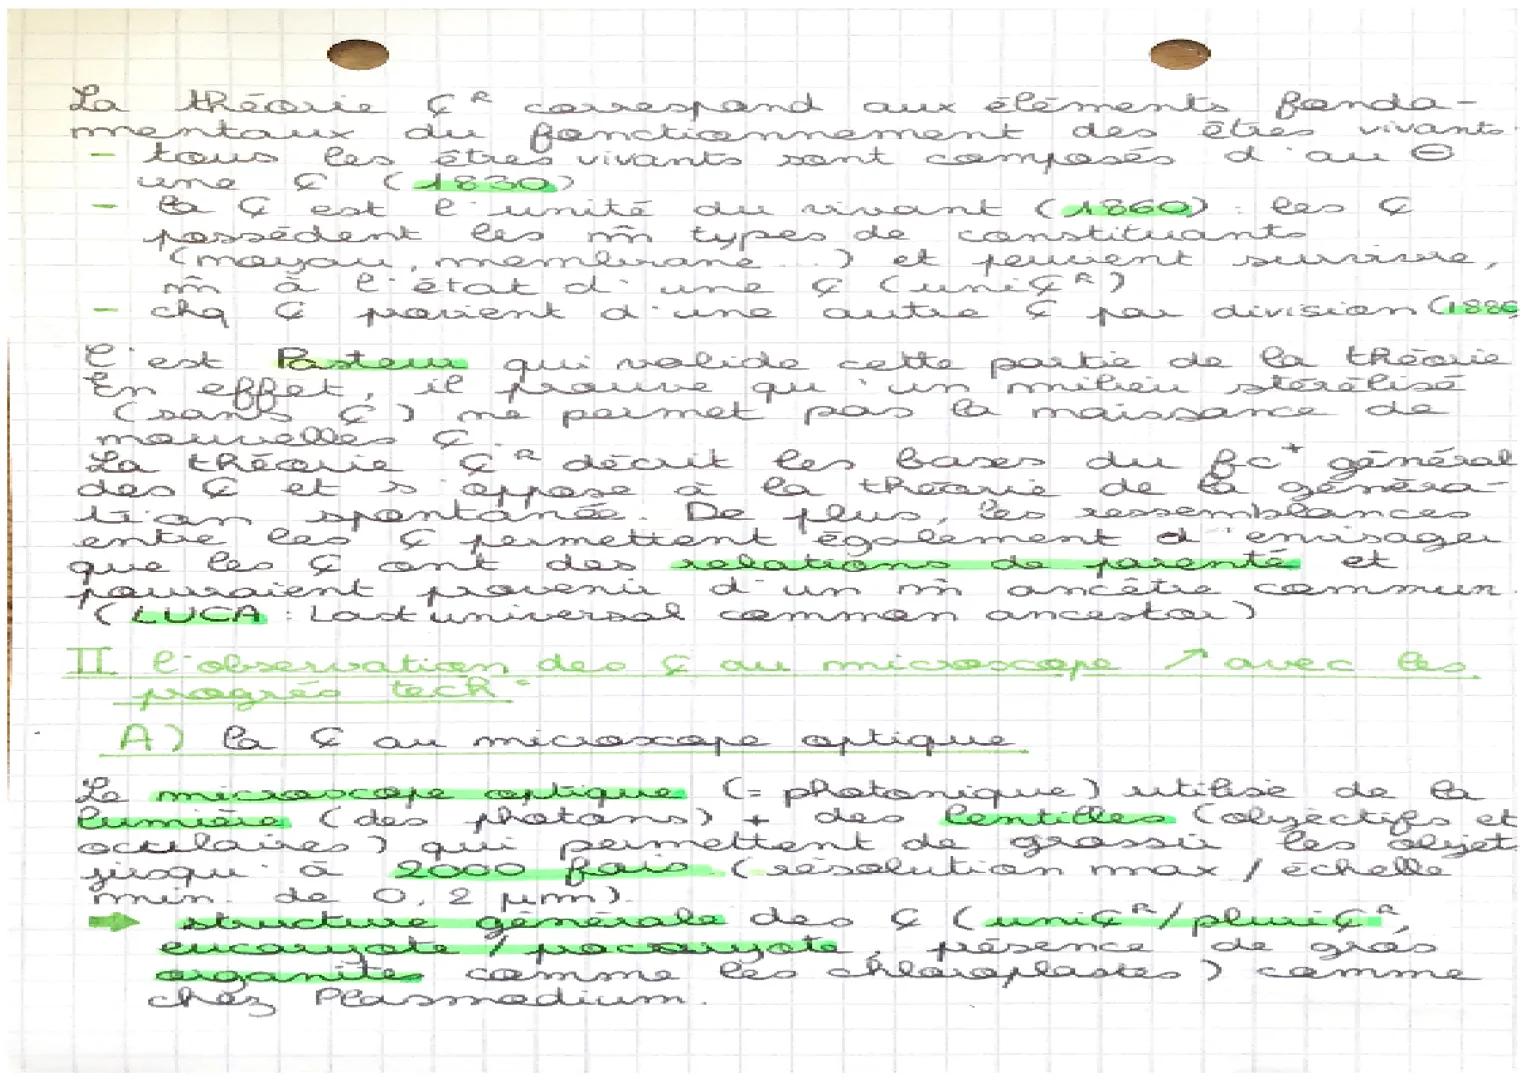 La théorie Ç^R correspond aux éléments fonda-
mentaux du fonctionnement des êtres vivants.
- tous les êtres vivants sont composés d'au ⊖
une Ç (1830)
- la Ç est l'unité du vivant (1860) : les Ç
possèdent les m̂ types de constituants
(noyau, membrane...) et peuvent survivre,
m̂ à l'état d'une Ç (uniÇ^R)
- chq Ç provient d'une autre Ç par division (188
C'est Pasteur qui valide cette partie de la théorie
En effet, il prouve qu'un milieu stérélisé
(sans Ç) ne permet pas la naissance de
nouvelles Ç.
La théorie Ç^R décrit les bases du fc^+ général
des Ç et s'oppose à la théorie de la généra-
tion spontanée. De plus, les ressemblances
entre les Ç permettent également d'envisager
que les Ç ont des relations de parenté et
pourraient provenir d'un m̂ ancêtre commun.
(LUCA : Last universal common ancestor)
II l'observation des Ç au microscope ↗ avec les
progrès tech°
A) la Ç au microscope optique
Le microscope optique (= photonique) utilise de la
lumière (des photons) + des lentilles (objectifs et
oculaires) qui permettent de grossir les objet
jusqu'à 2000 fois (résolution max / échelle
min. de 0,2 μm).
➡ structure générale des Ç (uniÇ^R/pluriÇ^R,
eucaryote / procaryote, présence de gros
organites comme les chloroplastes) comme
chez Plasmodium.